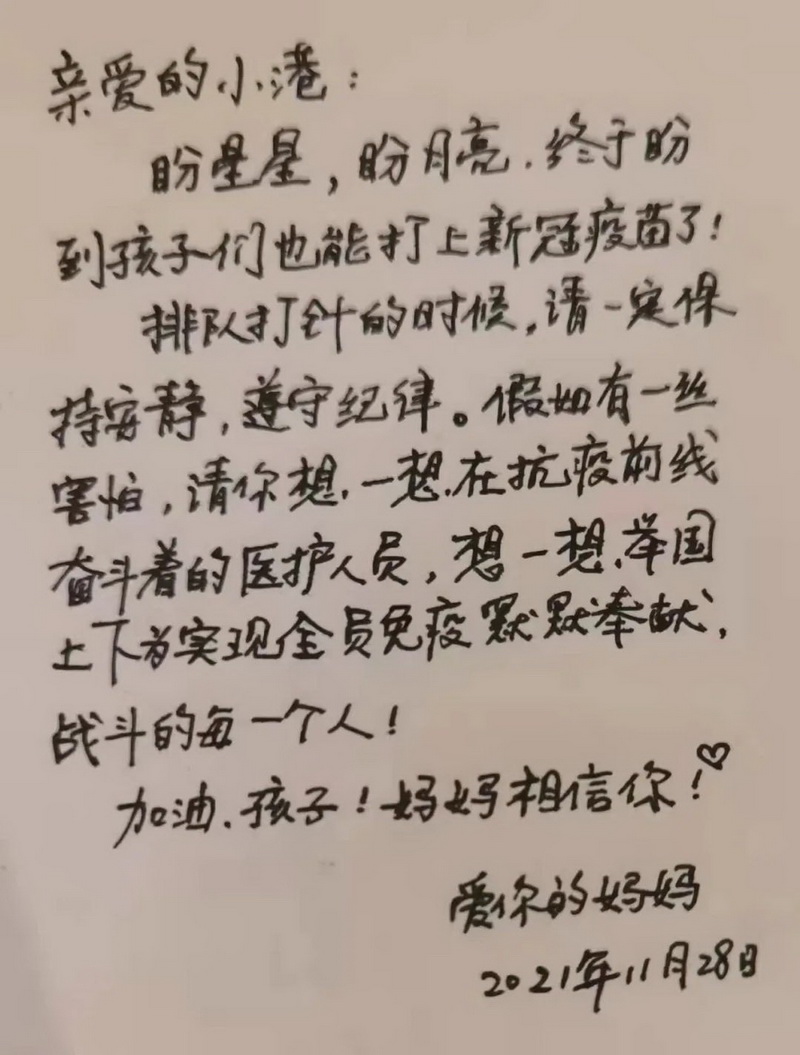 亲爱的小港：
盼星星，盼月亮，终于盼
到孩子们也能打上新冠疫苗了！
排队打针的时候，请一定保
持安静，遵守纪律。假如有一丝
害怕，请你想一想在抗疫前线
奋斗着的医护人员，想一想举国
上下为实现全员免疫默默奉献，
战斗的每一个人！
加油，孩子！妈妈相信你！♡
爱你的妈妈
2021年11月28日